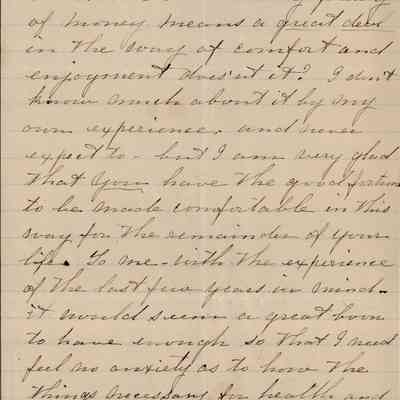 of money means a great deal
in the way of comfort and
enjoyment does'nt it? I don't
know much about it by my
own experience. and never
expect to - but I am very glad
that you have the good fortune
to be made comfortable in this
way for the remainder of your
life. To me - with the experience
of the last few years in mind -
it would seem a great boon
to have enough so that I need
feel no anxiety as to how the
things necessary for health and